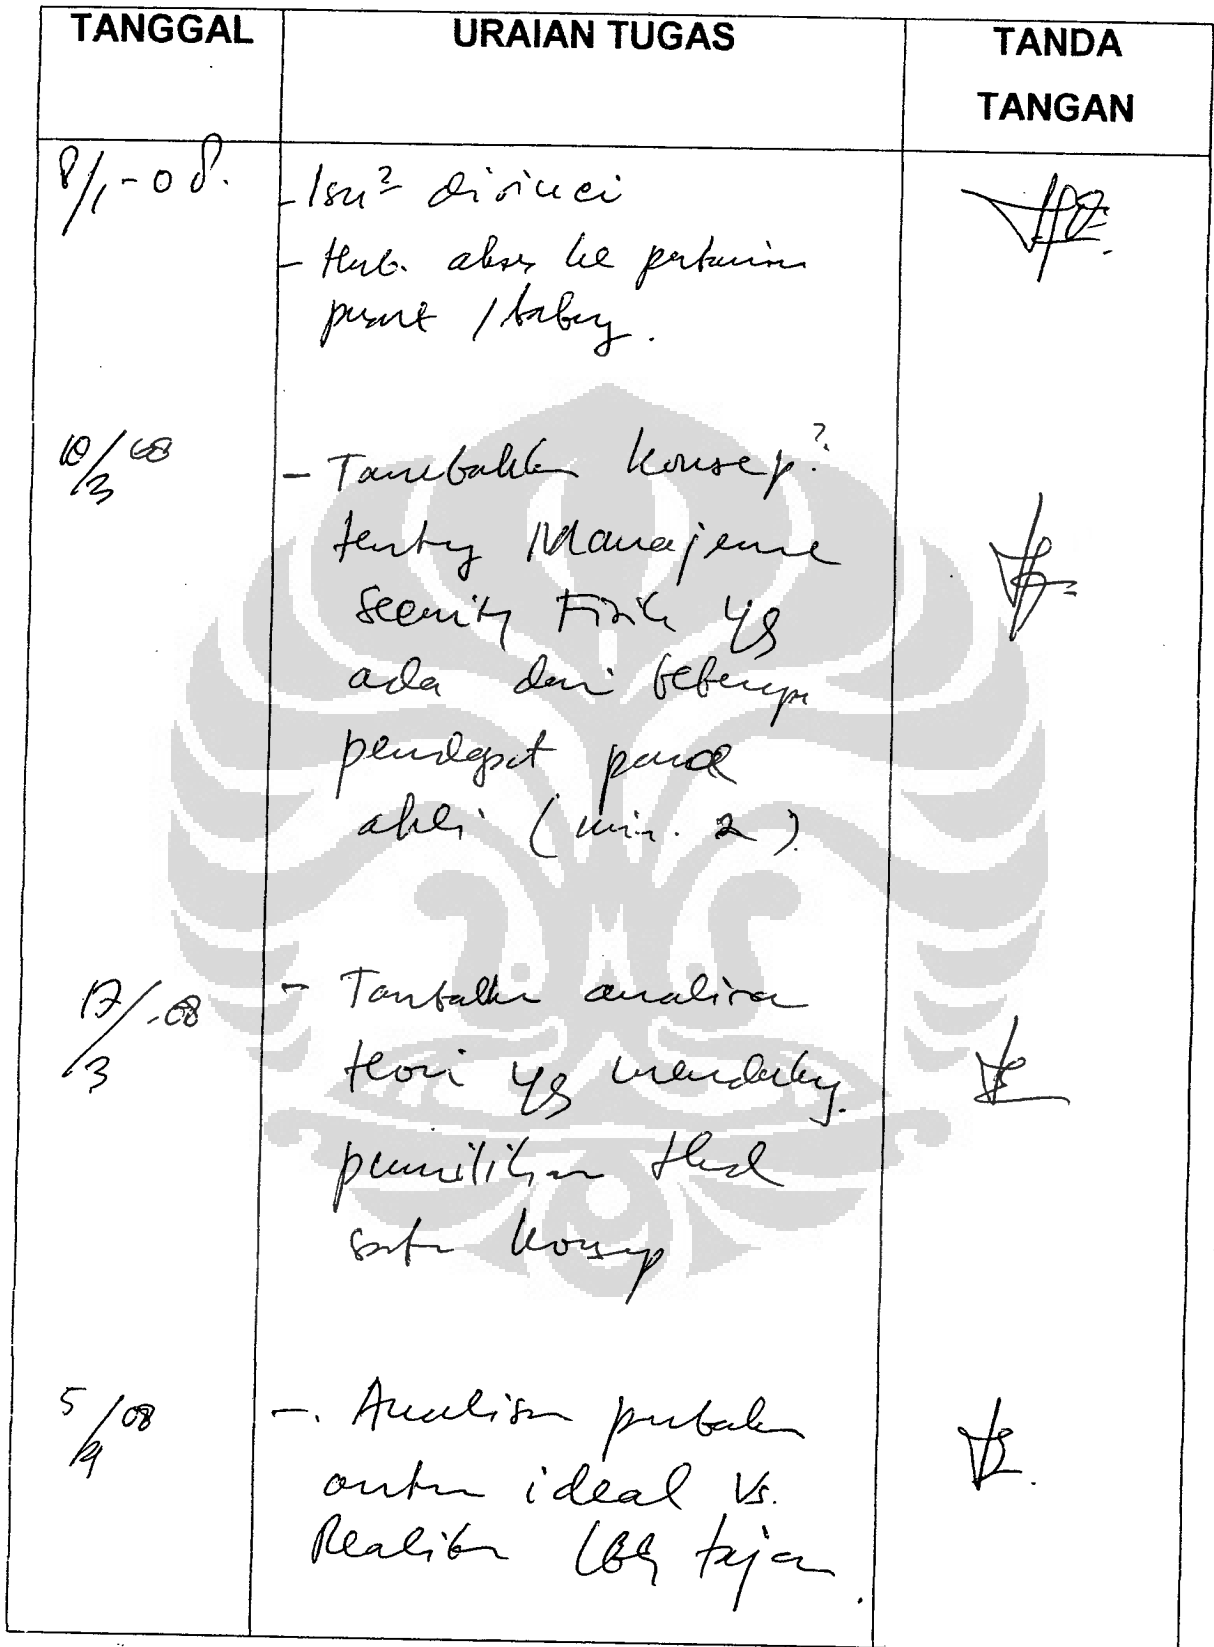 TANGGAL URAIAN TUGAS TANDA
TANGAN
8/1-08.
- Isu² dirinci
- Hub. akses ke
pusat /
10/3 08
- Tambahkan konsep²
tentang Manajemen
Security Fisik yg
ada dari beberapa
pendapat para
ahli (min. 2).
17/3-08
- Tambahkan analisa
teori yg mendukung
pemilihan thd
satu konsep
5/4 08
-. Analisa
antara ideal Vs.
Realita lbh tajam.